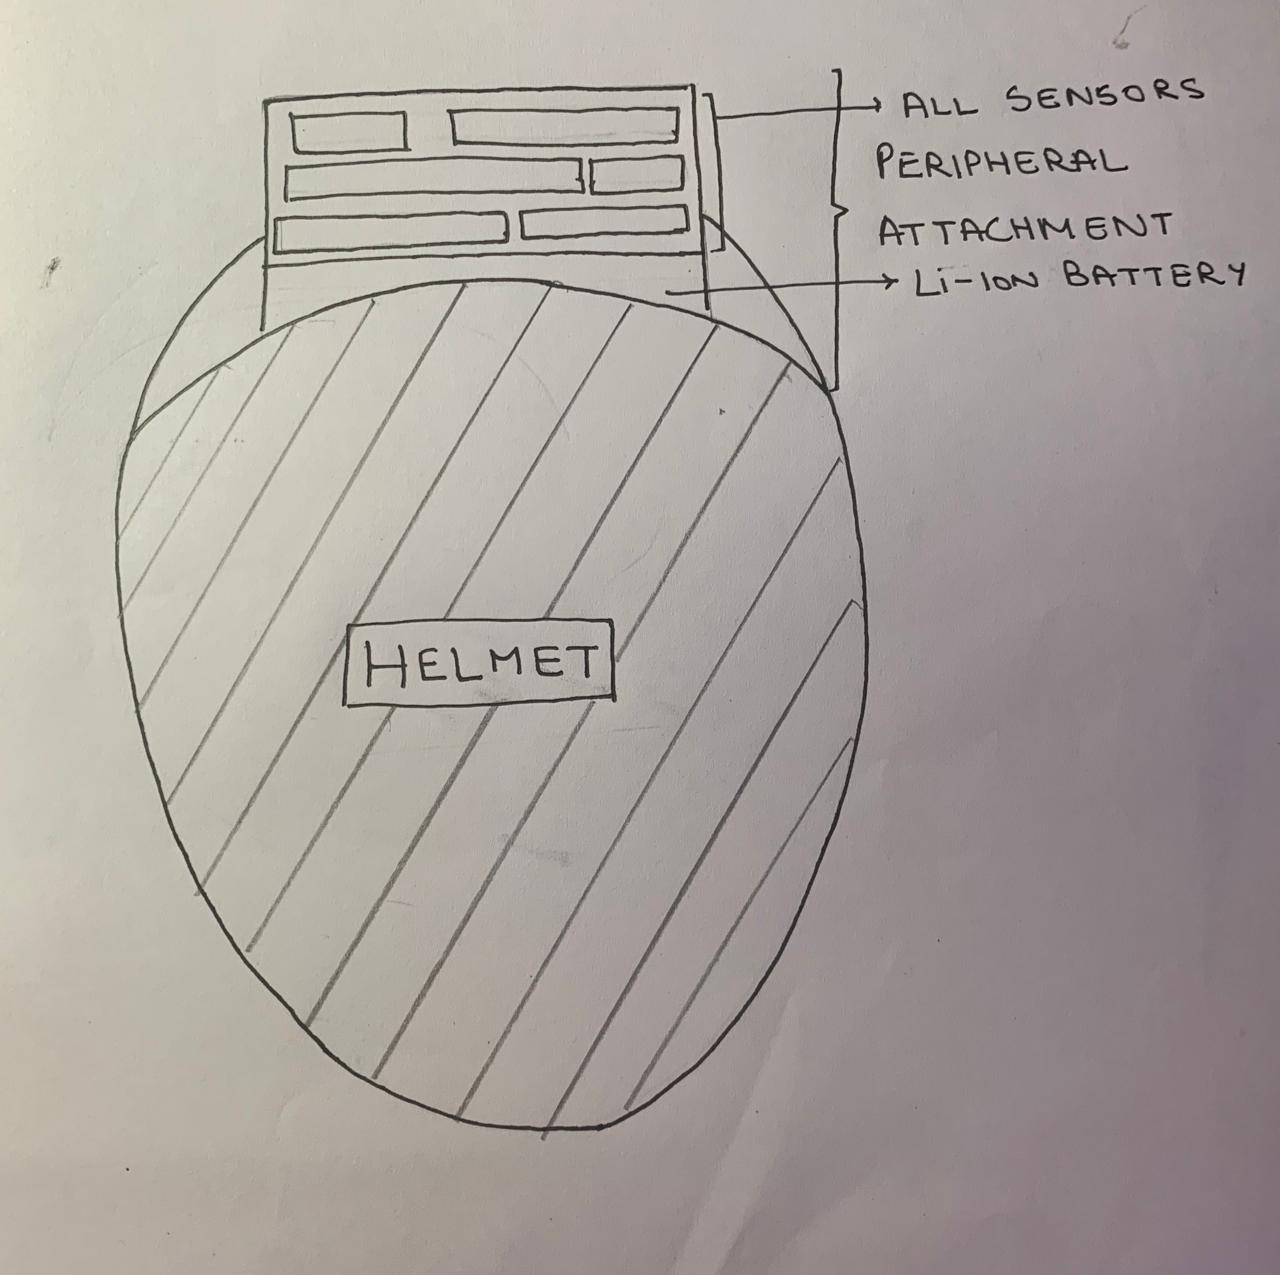 ALL SENSORS
PERIPHERAL
ATTACHMENT
Li-ION BATTERY
HELMET